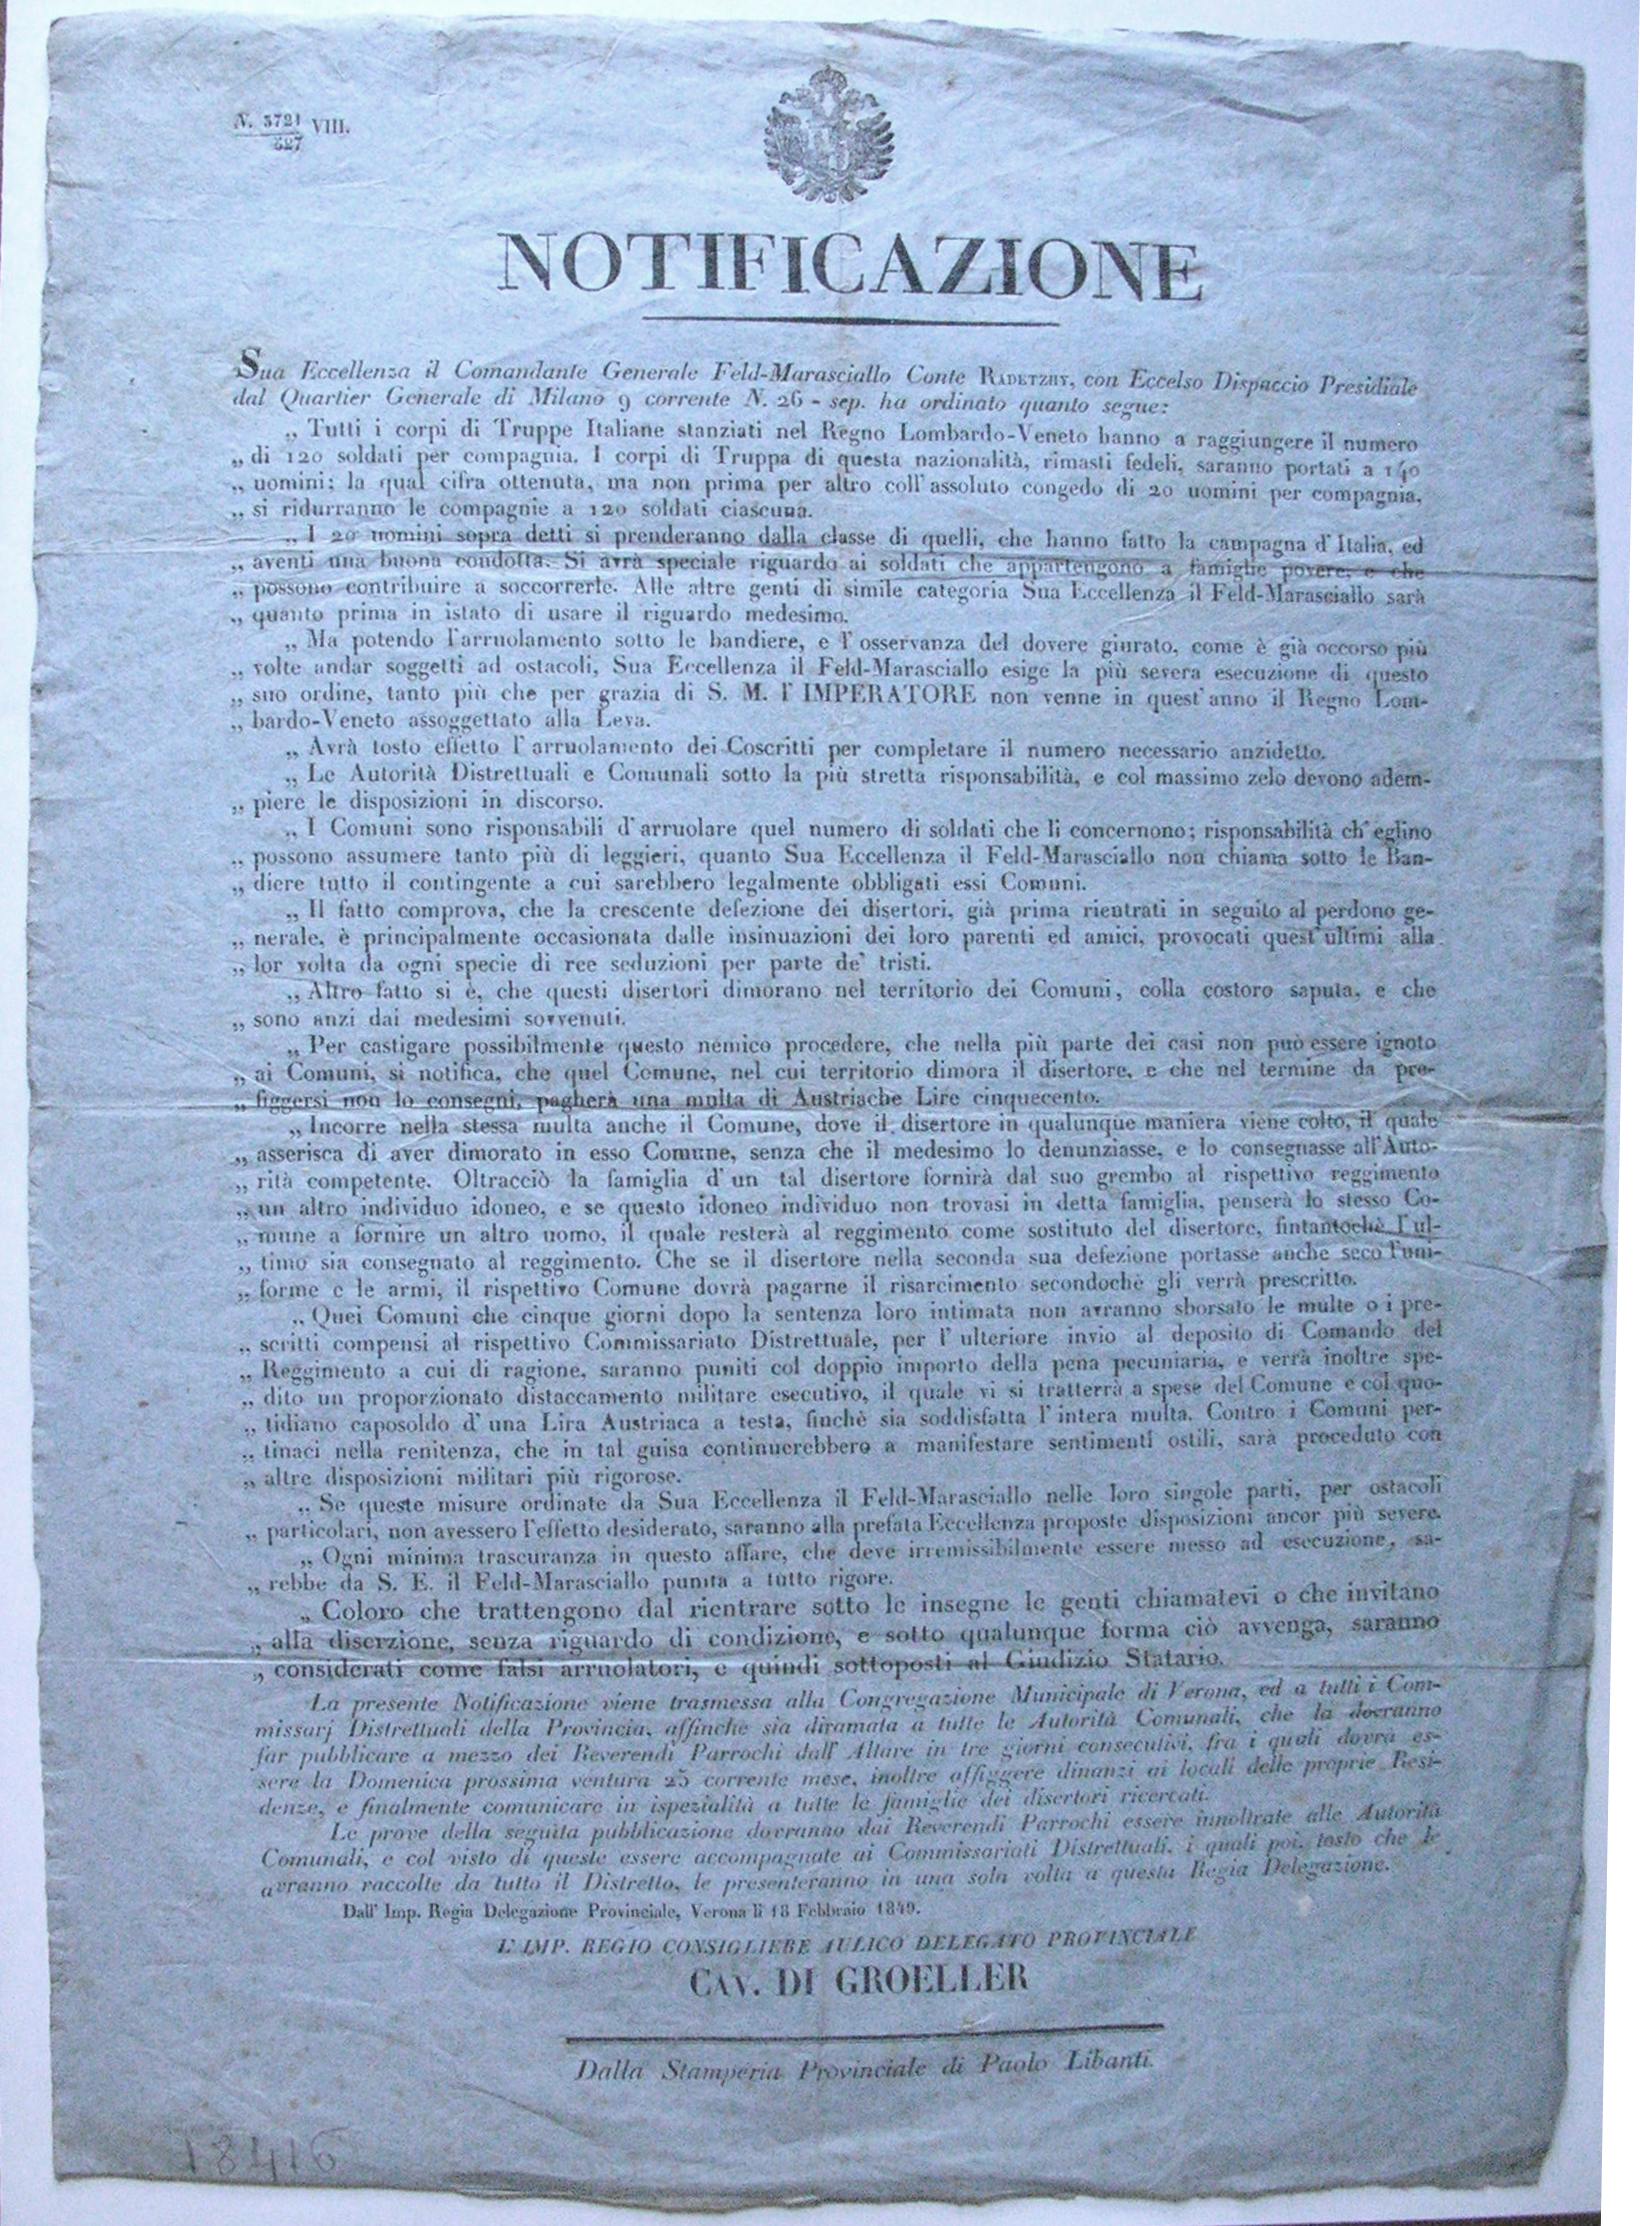 N. 3721/527 VIII.
NOTIFICAZIONE
Sua Eccellenza il Comandante Generale Feld-Marasciallo Conte RADETZKY, con Eccelso Dispaccio Presidiale
dal Quartier Generale di Milano 9 corrente N. 26 - sep. ha ordinato quanto segue:
„ Tutti i corpi di Truppe Italiane stanziati nel Regno Lombardo-Veneto hanno a raggiungere il numero
„ di 120 soldati per compagnia. I corpi di Truppa di questa nazionalità, rimasti fedeli, saranno portati a 140
„ uomini; la qual cifra ottenuta, ma non prima per altro coll'assoluto congedo di 20 uomini per compagnia,
„ si ridurranno le compagnie a 120 soldati ciascuna.
„ I 20 uomini sopra detti si prenderanno dalla classe di quelli, che hanno fatto la campagna d'Italia, ed
„ aventi una buona condotta. Si avrà speciale riguardo ai soldati che appartengono a famiglie povere, e che
„ possono contribuire a soccorrerle. Alle altre genti di simile categoria Sua Eccellenza il Feld-Marasciallo sarà
„ quanto prima in istato di usare il riguardo medesimo.
„ Ma potendo l'arruolamento sotto le bandiere, e l'osservanza del dovere giurato, come è già occorso più
„ volte andar soggetti ad ostacoli, Sua Eccellenza il Feld-Marasciallo esige la più severa esecuzione di questo
„ suo ordine, tanto più che per grazia di S. M. l'IMPERATORE non venne in quest'anno il Regno Lom-
„ bardo-Veneto assoggettato alla Leva.
„ Avrà tosto effetto l'arruolamento dei Coscritti per completare il numero necessario anzidetto.
„ Le Autorità Distrettuali e Comunali sotto la più stretta risponsabilità, e col massimo zelo devono adem-
„ piere le disposizioni in discorso.
„ I Comuni sono risponsabili d'arruolare quel numero di soldati che li concernono; risponsabilità ch'eglino
„ possono assumere tanto più di leggieri, quanto Sua Eccellenza il Feld-Marasciallo non chiama sotto le Ban-
„ diere tutto il contingente a cui sarebbero legalmente obbligati essi Comuni.
„ Il fatto comprova, che la crescente defezione dei disertori, già prima rientrati in seguito al perdono ge-
„ nerale, è principalmente occasionata dalle insinuazioni dei loro parenti ed amici, provocati quest'ultimi alla
„ lor volta da ogni specie di ree seduzioni per parte de' tristi.
„ Altro fatto si è, che questi disertori dimorano nel territorio dei Comuni, colla costoro saputa, e che
„ sono anzi dai medesimi sovvenuti.
„ Per castigare possibilmente questo nemico procedere, che nella più parte dei casi non può essere ignoto
„ ai Comuni, si notifica, che quel Comune, nel cui territorio dimora il disertore, e che nel termine da pre-
„ figgersi non lo consegni, pagherà una multa di Austriache Lire cinquecento.
„ Incorre nella stessa multa anche il Comune, dove il disertore in qualunque maniera viene colto, il quale
„ asserisca di aver dimorato in esso Comune, senza che il medesimo lo denunziasse, e lo consegnasse all'Auto-
„ rità competente. Oltracciò la famiglia d'un tal disertore fornirà dal suo grembo al rispettivo reggimento
„ un altro individuo idoneo, e se questo idoneo individuo non trovasi in detta famiglia, penserà lo stesso Co-
„ mune a fornire un altro uomo, il quale resterà al reggimento come sostituto del disertore, fintantochè l'ul-
„ timo sia consegnato al reggimento. Che se il disertore nella seconda sua defezione portasse anche seco l'uni-
„ forme e le armi, il rispettivo Comune dovrà pagarne il risarcimento secondochè gli verrà prescritto.
„ Quei Comuni che cinque giorni dopo la sentenza loro intimata non avranno sborsato le multe o i pre-
„ scritti compensi al rispettivo Commissariato Distrettuale, per l'ulteriore invio al deposito di Comando del
„ Reggimento a cui di ragione, saranno puniti col doppio importo della pena pecuniaria, e verrà inoltre spe-
„ dito un proporzionato distaccamento militare esecutivo, il quale vi si tratterrà a spese del Comune e col quo-
„ tidiano caposoldo d'una Lira Austriaca a testa, finchè sia soddisfatta l'intera multa. Contro i Comuni per-
„ tinaci nella renitenza, che in tal guisa continuerebbero a manifestare sentimenti ostili, sarà proceduto con
„ altre disposizioni militari più rigorose.
„ Se queste misure ordinate da Sua Eccellenza il Feld-Marasciallo nelle loro singole parti, per ostacoli
„ particolari, non avessero l'effetto desiderato, saranno alla prefata Eccellenza proposte disposizioni ancor più severe.
„ Ogni minima trascuranza in questo affare, che deve irremissibilmente essere messo ad esecuzione, sa-
„ rebbe da S. E. il Feld-Marasciallo punita a tutto rigore.
„ Coloro che trattengono dal rientrare sotto le insegne le genti chiamatevi o che invitano
„ alla diserzione, senza riguardo di condizione, e sotto qualunque forma ciò avvenga, saranno
„ considerati come falsi arruolatori, e quindi sottoposti al Giudizio Statario.
La presente Notificazione viene trasmessa alla Congregazione Municipale di Verona, ed a tutti i Com-
missarj Distrettuali della Provincia, affinchè sia diramata a tutte le Autorità Comunali, che la dovranno
far pubblicare a mezzo dei Reverendi Parrochi dall'Altare in tre giorni consecutivi, fra i quali dovrà es-
sere la Domenica prossima ventura 25 corrente mese, inoltre affiggere dinanzi ai locali delle proprie Resi-
denze, e finalmente comunicare in ispezialità a tutte le famiglie dei disertori ricercati.
Le prove della seguita pubblicazione dovranno dai Reverendi Parrochi essere innoltrate alle Autorità
Comunali, e col visto di queste essere accompagnate ai Commissariati Distrettuali, i quali poi, tosto che le
avranno raccolte da tutto il Distretto, le presenteranno in una sola volta a questa Regia Delegazione.
Dall' Imp. Regia Delegazione Provinciale, Verona li 18 Febbraio 1849.
L'IMP. REGIO CONSIGLIERE AULICO DELEGATO PROVINCIALE
CAV. DI GROELLER
Dalla Stamperia Provinciale di Paolo Libanti.
18416